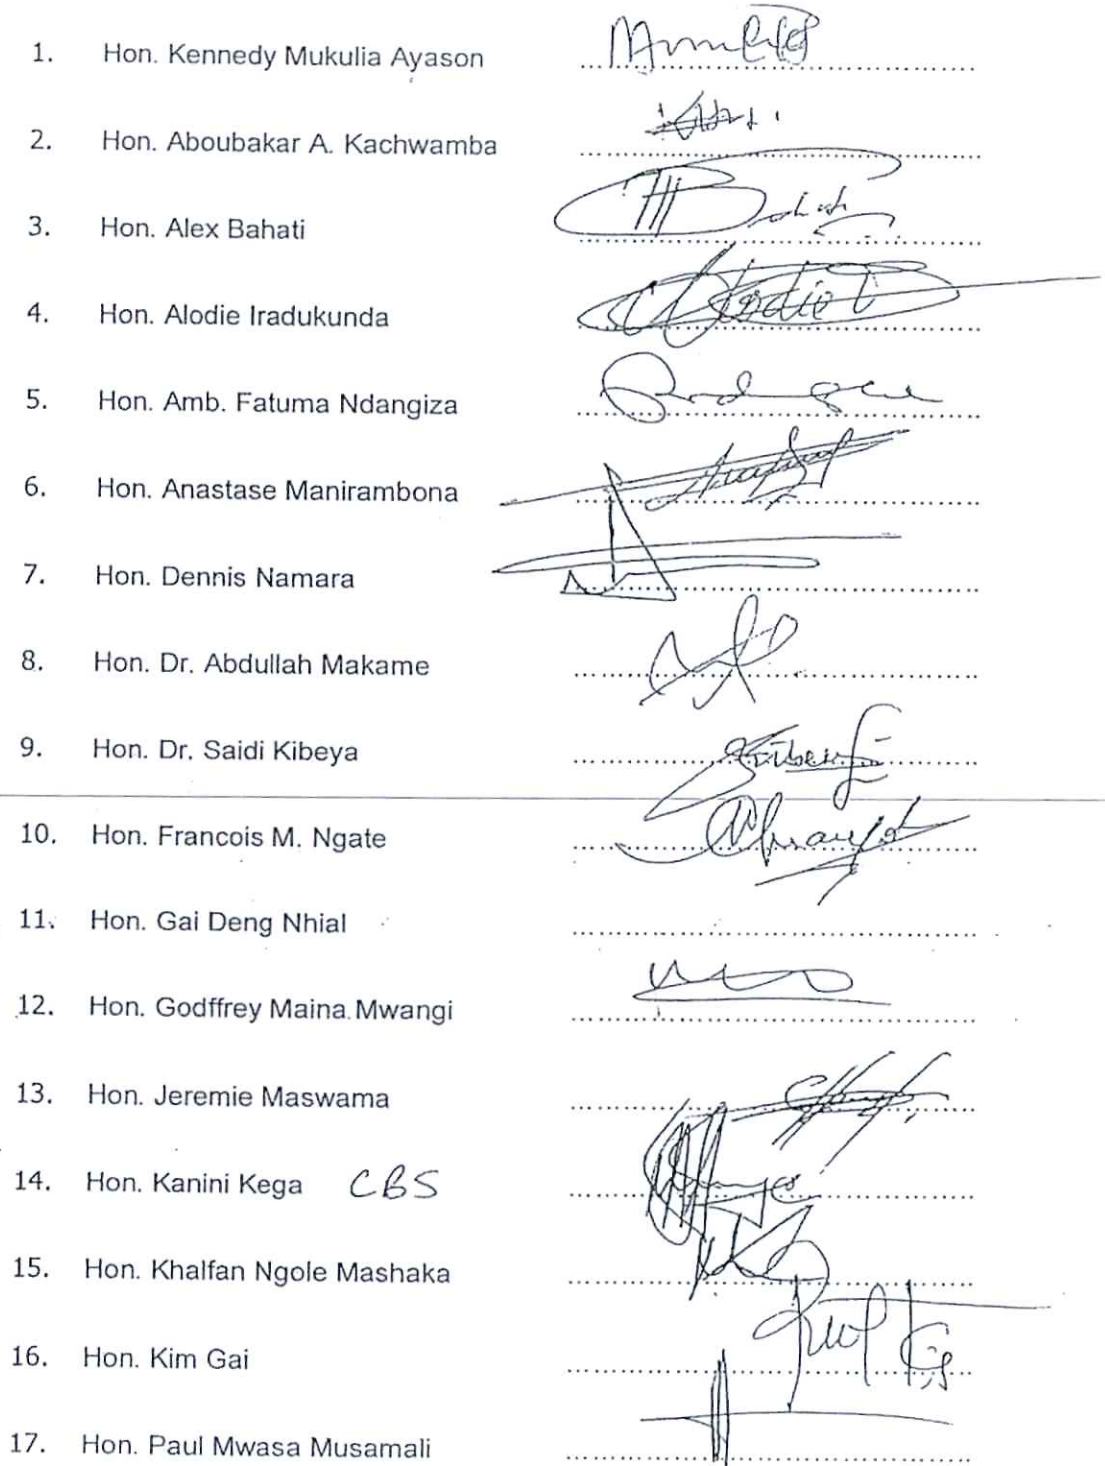 1. Hon. Kennedy Mukulia Ayason
2. Hon. Aboubakar A. Kachwamba
3. Hon. Alex Bahati
4. Hon. Alodie Iradukunda
5. Hon. Amb. Fatuma Ndangiza
6. Hon. Anastase Manirambona
7. Hon. Dennis Namara
8. Hon. Dr. Abdullah Makame
9. Hon. Dr. Saidi Kibeya
10. Hon. Francois M. Ngate
11. Hon. Gai Deng Nhial
12. Hon. Godffrey Maina Mwangi
13. Hon. Jeremie Maswama
14. Hon. Kanini Kega CBS
15. Hon. Khalfan Ngole Mashaka
16. Hon. Kim Gai
17. Hon. Paul Mwasa Musamali